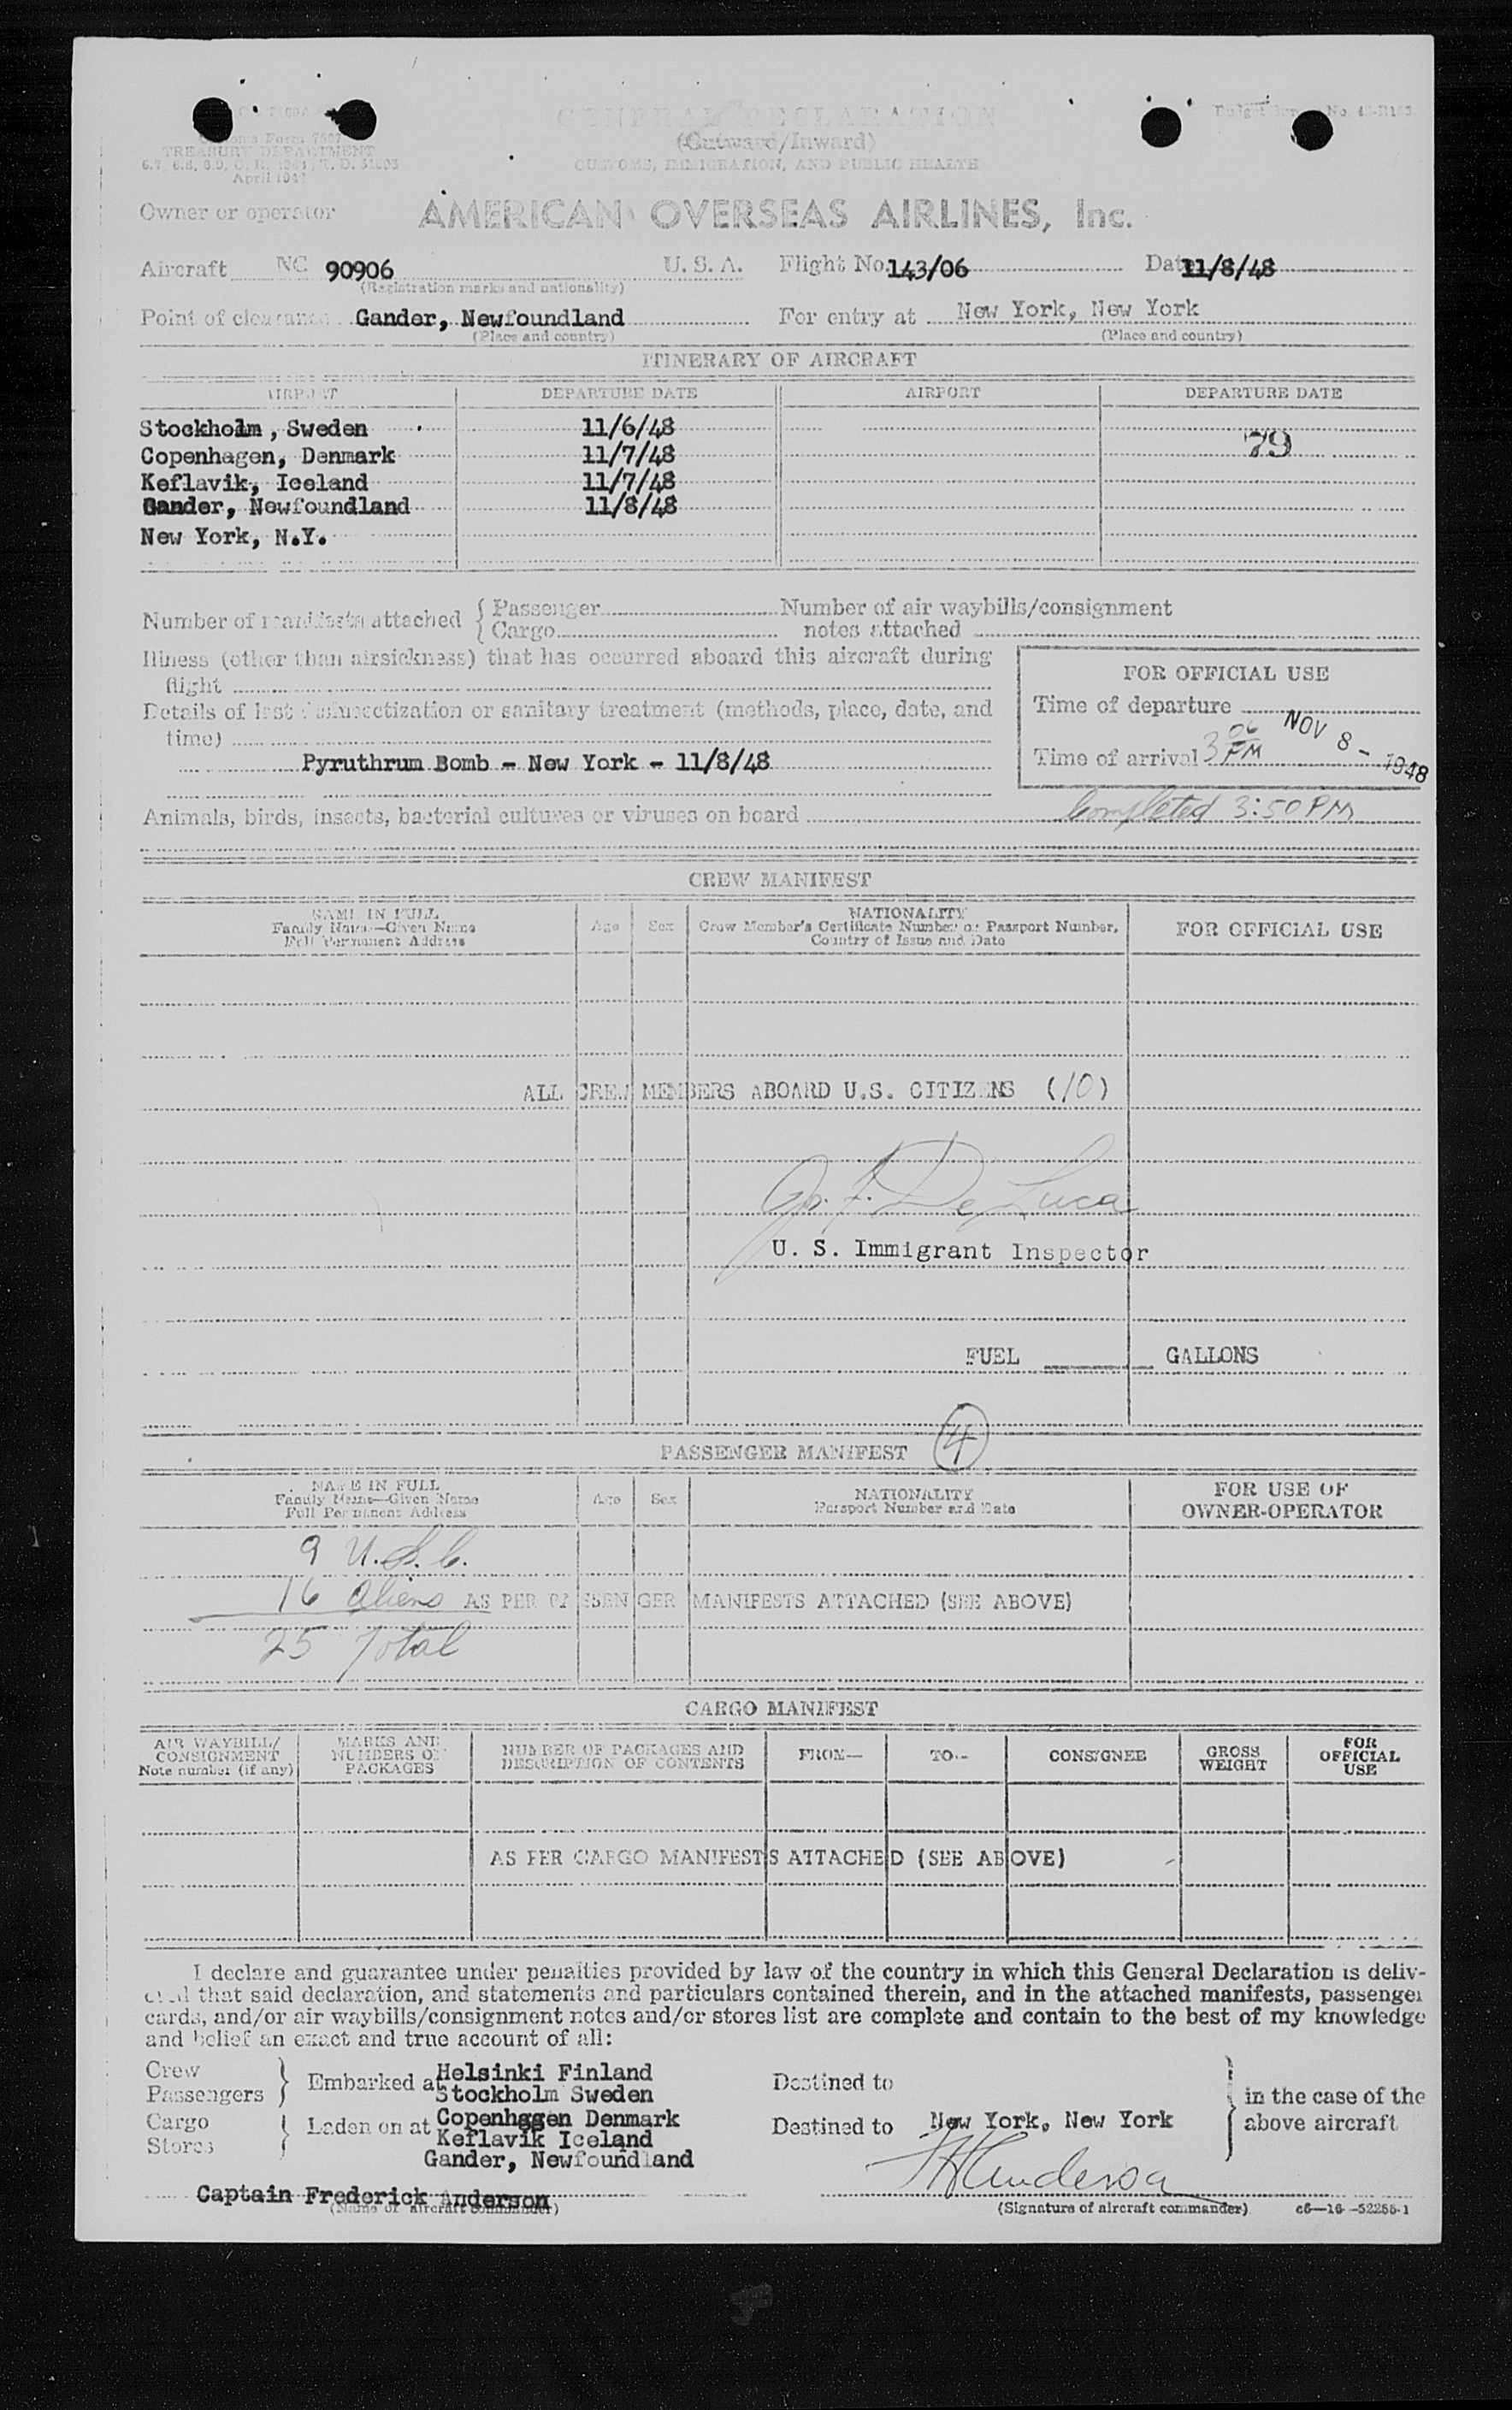 GENERAL DECLARATION
(Outward/Inward)
CUSTOMS, IMMIGRATION, AND PUBLIC HEALTH
Customs Form 7507
TREASURY DEPARTMENT
April 194
Owner or operator AMERICAN OVERSEAS AIRLINES, Inc.
Aircraft NC 90906 U. S. A. Flight No. 143/06 Date 11/8/48
(Registration marks and nationality)
Point of clearance Gander, Newfoundland For entry at New York, New York
(Place and country) (Place and country)
ITINERARY OF AIRCRAFT
AIRPORT DEPARTURE DATE AIRPORT DEPARTURE DATE
Stockholm, Sweden 11/6/48
79
Copenhagen, Denmark 11/7/48
Keflavik, Iceland 11/7/48
Gander, Newfoundland 11/8/48
New York, N.Y.
Number of manifests attached { Passenger Number of air waybills/consignment
{ Cargo notes attached
Illness (other than airsickness) that has occurred aboard this aircraft during
flight
FOR OFFICIAL USE
Details of last disinsectization or sanitary treatment (methods, place, date, and
time)
Time of departure
Time of arrival 3 06 PM NOV 8 - 1948
Pyruthrum Bomb - New York - 11/8/48
Animals, birds, insects, bacterial cultures or viruses on board Completed 3:50 PM
CREW MANIFEST
NAME IN FULL
Family Name—Given Name
Full Permanent Address
Age Sex
NATIONALITY
Crew Member's Certificate Number or Passport Number,
Country of Issue and Date
FOR OFFICIAL USE
ALL CREW MEMBERS ABOARD U.S. CITIZENS (10)
De Luca
U. S. Immigrant Inspector
FUEL GALLONS
PASSENGER MANIFEST 4
NAME IN FULL
Family Name—Given Name
Full Permanent Address
Age Sex
NATIONALITY
Passport Number and Date
FOR USE OF
OWNER-OPERATOR
9 U.S.C.
16 Aliens AS PER PASSENGER MANIFESTS ATTACHED (SEE ABOVE)
25 Total
CARGO MANIFEST
AIR WAYBILL/
CONSIGNMENT
Note number (if any)
MARKS AND
NUMBERS OF
PACKAGES
NUMBER OF PACKAGES AND
DESCRIPTION OF CONTENTS
FROM— TO— CONSIGNEE
GROSS
WEIGHT
FOR
OFFICIAL
USE
AS PER CARGO MANIFESTS ATTACHED (SEE ABOVE)
I declare and guarantee under penalties provided by law of the country in which this General Declaration is deliv-
ered that said declaration, and statements and particulars contained therein, and in the attached manifests, passenger
cards, and/or air waybills/consignment notes and/or stores list are complete and contain to the best of my knowledge
and belief an exact and true account of all:
Crew
Passengers } Embarked at Helsinki Finland
Stockholm Sweden
Destined to
Cargo
Stores } Laden on at Copenhggen Denmark
Keflavik Iceland
Gander, Newfoundland
Destined to New York, New York
} in the case of the
above aircraft
Captain Frederick Anderson
(Name of aircraft commander)
(Signature of aircraft commander) c6—16—52255-1